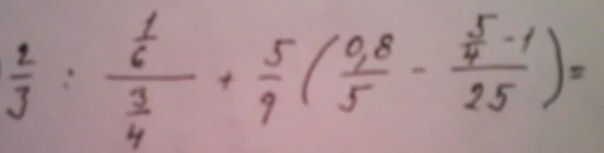 2/3 : (1/6)/(3/4) + 5/9 (0,8/5 - (5/4 - 1)/25) =